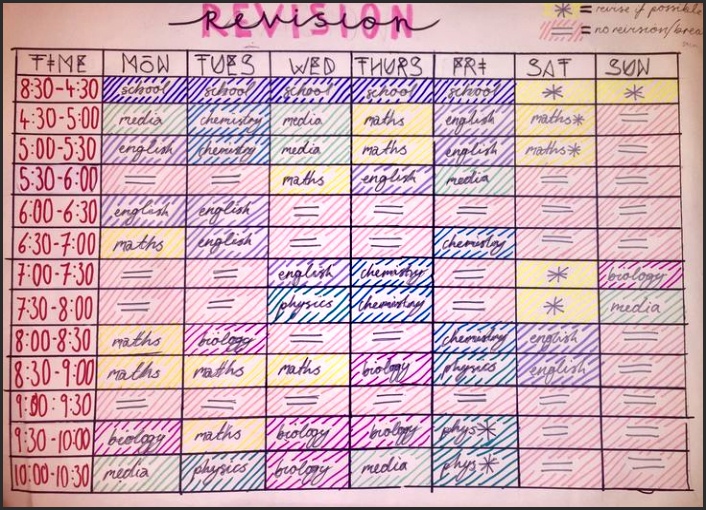 REVISION
Revision
* = revise if possible
= = no revision/brea
TIME MON TUES WED THURS FRI SAT SUN
8:30-4:30 school school school school school * *
4:30-5:00 media chemistry media maths english maths* =
5:00-5:30 english chemistry media maths english maths* =
5:30-6:00 = = maths english media = =
6:00-6:30 english english = = = = =
6:30-7:00 maths english = = chemistry = =
7:00-7:30 = = english chemistry = * biology
7:30-8:00 = = physics chemistry = * media
8:00-8:30 maths biology = = chemistry english =
8:30-9:00 maths maths maths biology physics english =
9:00:9:30 = = = = = = =
9:30-10:00 biology maths biology biology phys* = =
10:00-10:30 media physics biology media phys* = =